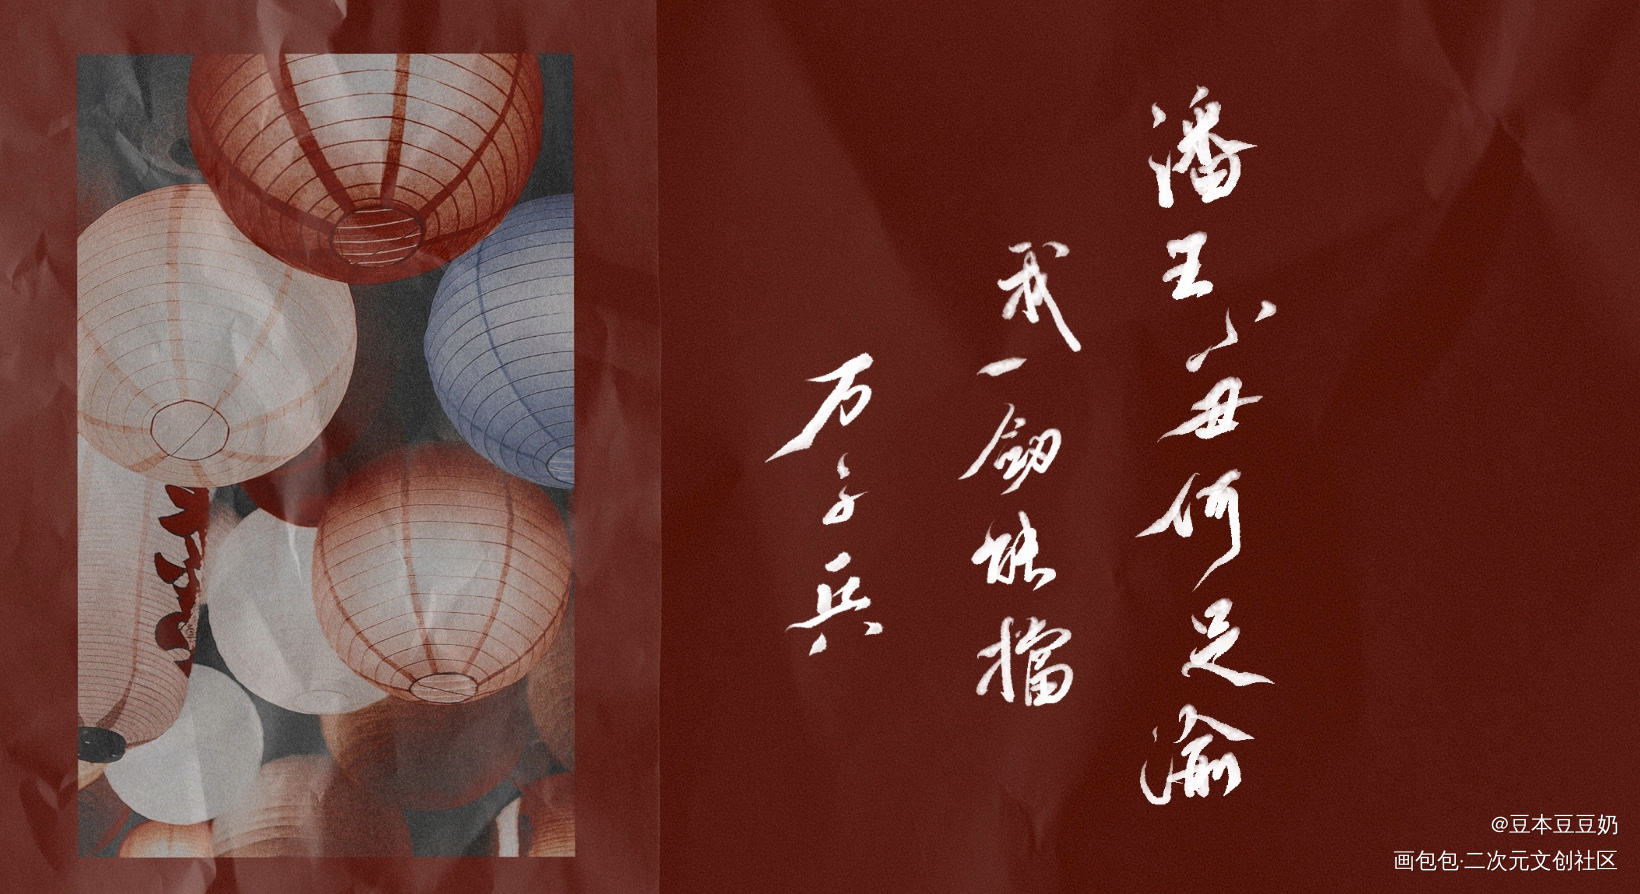 潘王小丑何足渝
我一劍能擋
万千兵
@豆本豆豆奶
画包包·二次元文创社区